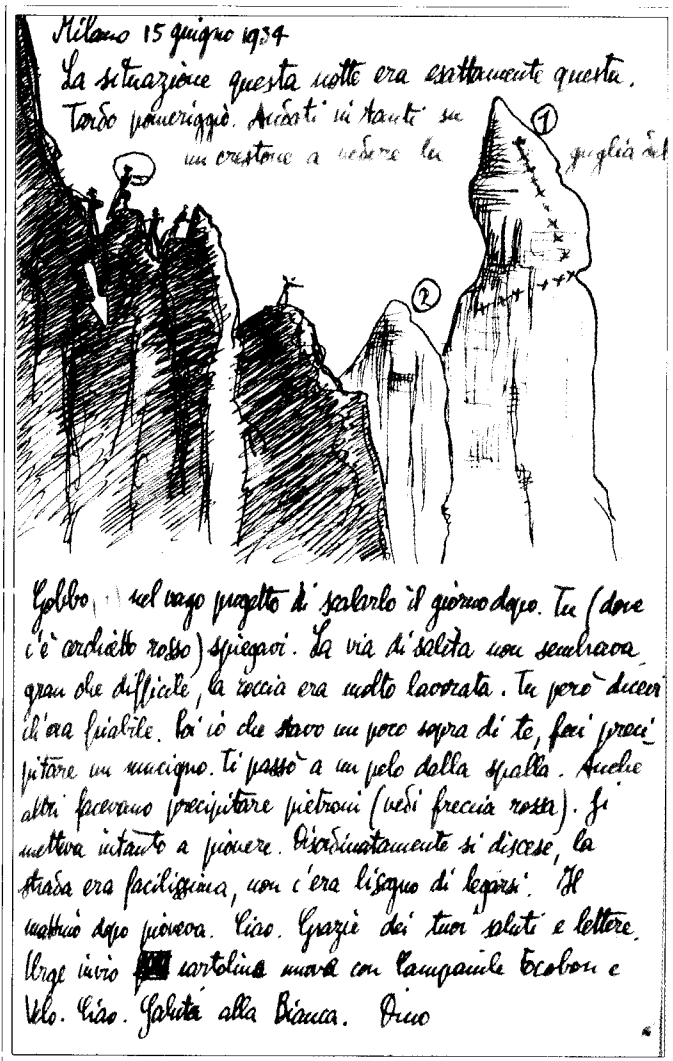 Milano 15 giugno 1934
La situazione questa notte era esattamente questa.
Tardo pomeriggio. Andati in tanti su
un crestone a vedere la guglia del
1
2
Gobbo, nel vago progetto di scalarlo il giorno dopo. Tu (dove
c'è cerchietto rosso) spiegavi. La via di salita non sembrava
gran che difficile, la roccia era molto lavorata. Tu però dicevi
ch'era friabile. Poi io che stavo un poco sopra di te, feci preci-
pitare un macigno. Ti passò a un pelo dalla spalla. Anche
altri facevano precipitare pietroni (vedi freccia rossa). Si
metteva intanto a piovere. Disordinatamente si discese, la
strada era facilissima, non c'era bisogno di legarsi. Il
mattino dopo pioveva. Ciao. Grazie dei tuoi saluti e lettere.
Urge invio cartolina nuova con Campanile Focobon e
Velo. Ciao. Saluta alla Bianca. Dino